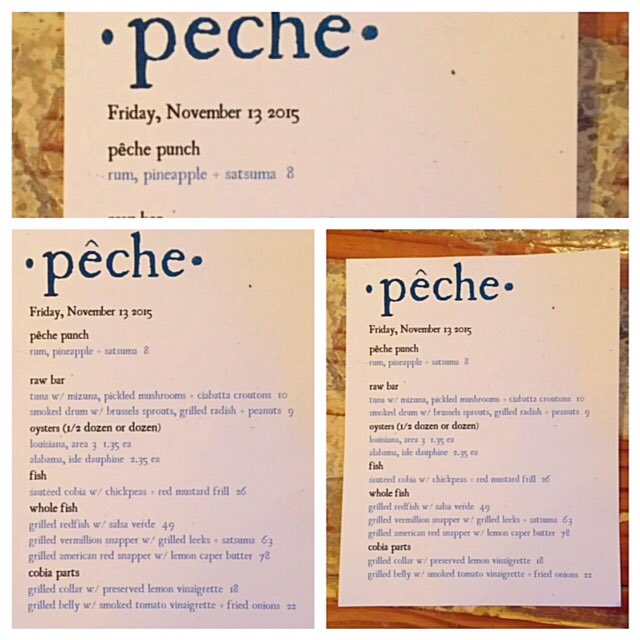 •pêche•
Friday, November 13 2015
pêche punch
rum, pineapple + satsuma 8
raw bar
•pêche•
Friday, November 13 2015
pêche punch
rum, pineapple + satsuma 8
raw bar
tuna w/ mizuna, pickled mushrooms + ciabatta croutons 10
smoked drum w/ brussels sprouts, grilled radish + peanuts 9
oysters (1/2 dozen or dozen)
louisiana, area 3 1.35 ea
alabama, isle dauphine 2.35 ea
fish
sauteed cobia w/ chickpeas + red mustard frill 26
whole fish
grilled redfish w/ salsa verde 49
grilled vermillion snapper w/ grilled leeks + satsuma 63
grilled american red snapper w/ lemon caper butter 78
cobia parts
grilled collar w/ preserved lemon vinaigrette 18
grilled belly w/ smoked tomato vinaigrette + fried onions 22
•pêche•
Friday, November 13 2015
pêche punch
rum, pineapple + satsuma 8
raw bar
tuna w/ mizuna, pickled mushrooms + ciabatta croutons 10
smoked drum w/ brussels sprouts, grilled radish + peanuts 9
oysters (1/2 dozen or dozen)
louisiana, area 3 1.35 ea
alabama, isle dauphine 2.35 ea
fish
sauteed cobia w/ chickpeas + red mustard frill 26
whole fish
grilled redfish w/ salsa verde 49
grilled vermillion snapper w/ grilled leeks + satsuma 63
grilled american red snapper w/ lemon caper butter 78
cobia parts
grilled collar w/ preserved lemon vinaigrette 18
grilled belly w/ smoked tomato vinaigrette + fried onions 22